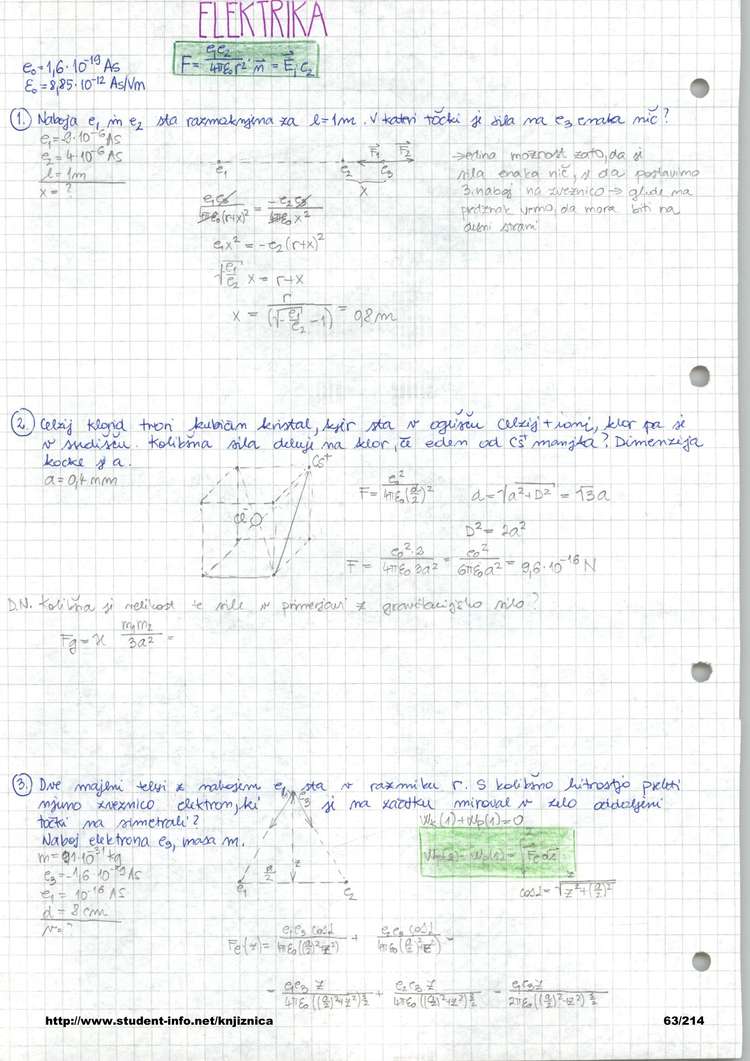 ELEKTRIKA
e₀ = 1,6·10⁻¹⁹ As
ε₀ = 8,85·10⁻¹² As/Vm
F = e₁e₂/4πε₀r² · n⃗ = E⃗₁e₂
1. Naboja e₁ in e₂ sta razmaknjena za l = 1m. V kateri točki je sila na e₃ enaka nič?
e₁ = 9·10⁻⁶ As
e₂ = 4·10⁻⁶ As
l = 1m
x = ?
e₁ e₂ F₁ e₃ F₂
x
→ edina možnost zato, da je
sila enaka nič, je da postavimo
3. naboj na zveznico → glede na
predznak vemo, da mora biti na
desni strani
e₁e₃/4πε₀(r+x)² = -e₂e₃/4πε₀x²
e₁x² = -e₂(r+x)²
√(-e₁/e₂) x = r+x
x = r/(√(-e₁/e₂) -1) =
2. Celzij klorid tvori kubičen kristal, kjer sta v ogljišču Celzij + ioni, klor pa je
v središču. Kolikšna sila deluje na klor, če eden od Cs⁺ manjka? Dimenzija
kocke je a.
a = 0,4 mm
Cs⁺
Cl⁻
F = e₀²/4πε₀(d/2)²
d = √(a²+D²) = √3a
D² = 2a²
F = e₀²·2/4πε₀3a² = e₀²/6πε₀a² = 9,6·10⁻¹⁶ N
D.N. Kolikšna je velikost te sile v primerjavi z gravitacijsko silo?
Fg = ϰ m₁m₂/3a² =
3. Dve majhni telesi z nabojem e₁ sta v razmiku r. S kolikšno hitrostjo preleti
njuno zveznico elektron, ki je na začetku miroval v zelo oddaljeni
točki na simetrali?
Naboj elektrona e₃, masa m.
Wk(1)+Wp(1)=0
m = 9,1·10⁻³¹ kg
e₃ = -1,6·10⁻¹⁹ As
e₁ = 10⁻¹⁶ As
d = 8 cm
v = ?
e₃
z
a/2
e₁ e₂
cosα = z/√(z²+(a/2)²)
Fe(z) = e₁e₃ cosα/4πε₀((a/2)²+z²) + e₂e₃ cosα/4πε₀((a/2)²+z²) =
= e₁e₃ z/4πε₀((a/2)²+z²)^3/2 + e₂e₃ z/4πε₀((a/2)²+z²)^3/2 = e₁e₃z/2πε₀((a/2)²+z²)^3/2
http://www.student-info.net/knjiznica 63/214